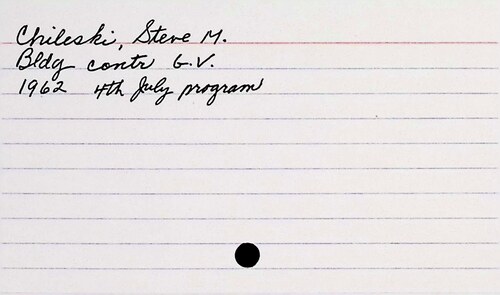 Chileski, Steve M.
Bldg contr G.V.
1962 4th July program